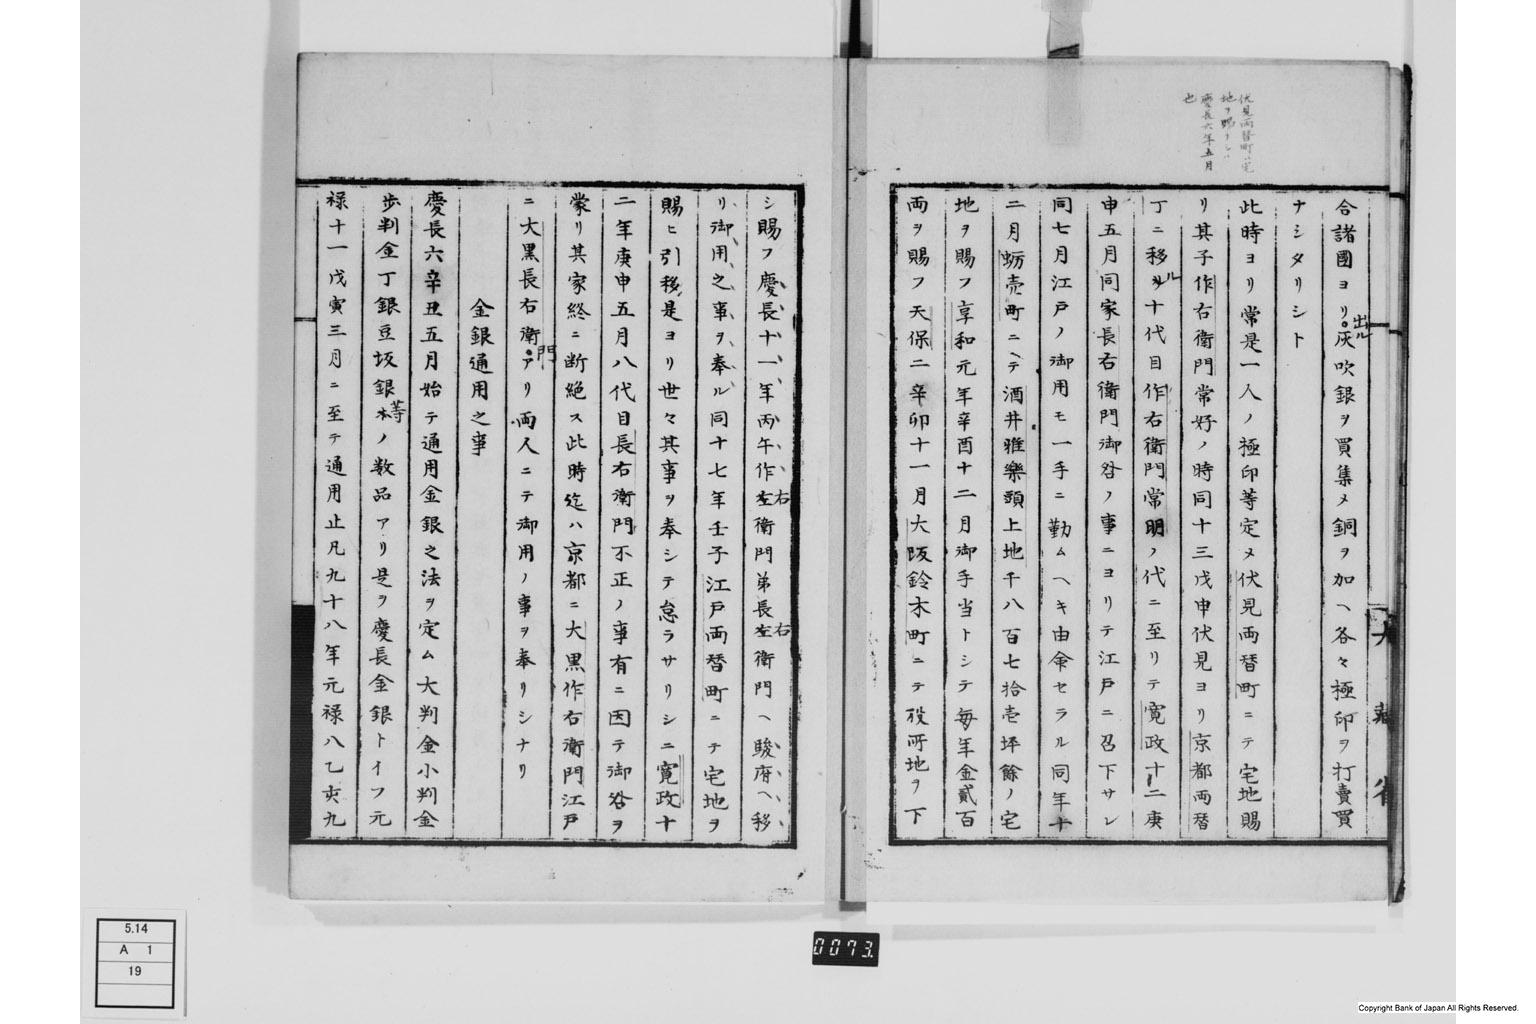 伏見両替町ニ宅
地ヲ賜リシハ
慶長六年五月
也
合諸國ヨリ出ル灰吹銀ヲ買集メ銅ヲ加ヘ各々極印ヲ打賣買
ナシタリシト
此時ヨリ常是一人ノ極印等定メ伏見両替町ニテ宅地賜
リ其子作右衛門常好ノ時同十三戊申伏見ヨリ京都両替
丁ニ移ル十代目作右衛門常明ノ代ニ至リテ寛政十二庚
申五月同家長右衛門御咎ノ事ニヨリテ江戸ニ召下サレ
同七月江戸ノ御用モ一手ニ勤ムヘキ由命セラル同年十
二月蛎売町ニテ酒井雅樂頭上地千八百七拾壱坪餘ノ宅
地ヲ賜フ享和元年辛酉十二月御手当トシテ毎年金貳百
両ヲ賜フ天保二辛卯十一月大阪鈴木町ニテ役所地ヲ下
大藏省
シ賜フ慶長十一年丙午作右衛門弟長右衛門ヘ駿府ヘ移
リ御用之事ヲ奉ル同十七年壬子江戸両替町ニテ宅地ヲ
賜ヒ引移是ヨリ世々其事ヲ奉シテ怠ラサリシニ寛政十
二年庚申五月八代目長右衛門不正ノ事有ニ因テ御咎ヲ
蒙リ其家終ニ断絶ス此時迄ハ京都ニ大黒作右衛門江戸
ニ大黒長右衛門アリ両人ニテ御用ノ事ヲ奉リシナリ
金銀通用之事
慶長六辛丑五月始テ通用金銀之法ヲ定ム大判金小判金
歩判金丁銀豆坂銀等ノ数品アリ是ヲ慶長金銀トイフ元
禄十一戊寅三月ニ至テ通用止凡九十八年元禄八乙亥九
5.14
A 1
19
0073.
Copyright Bank of Japan All Rights Reserved.